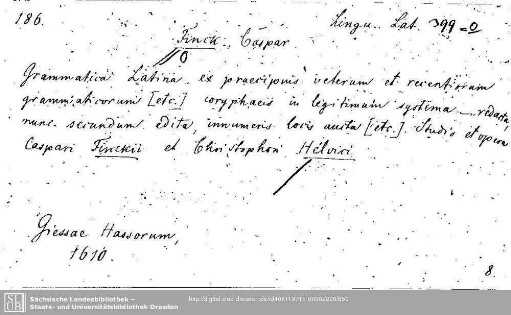 186.
Lingu. Lat. 399 =0
Finck, Caspar
Grammatica Latina ex praecipuis veterum et recentiorum
grammaticorum [etc.] coryphaeis in legitimum systema redacta,
nunc secundum edita innumeris locis aucta [etc.]. Studio et opera
Caspari Finckii et Christophori Helvici
Giessae Hassorum,
1610.
8.
SLUB
Sächsische Landesbibliothek –
Staats- und Universitätsbibliothek Dresden